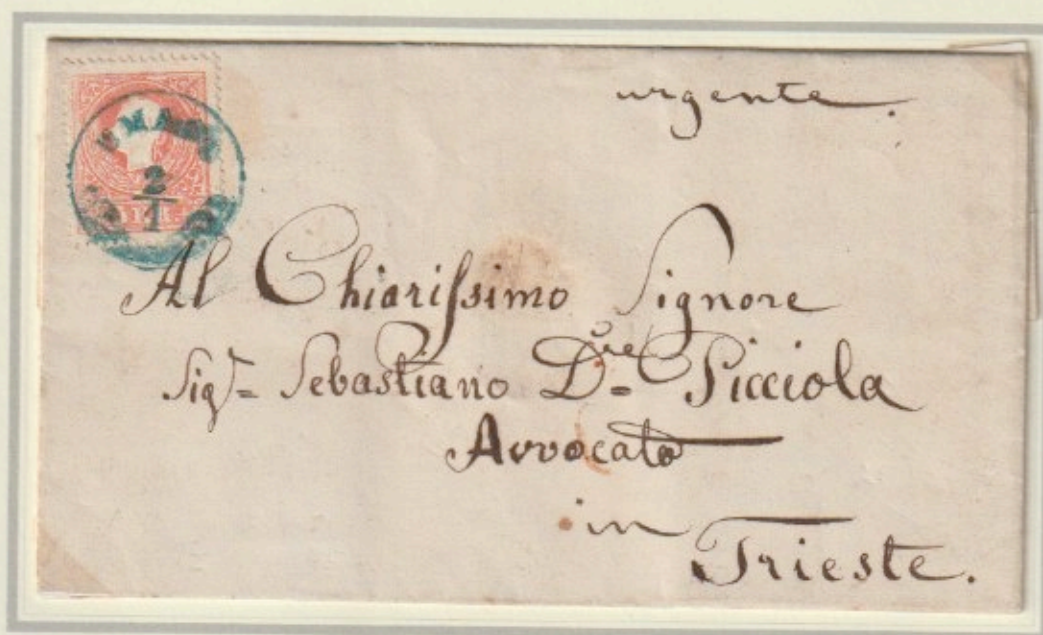 urgente.
2
1
Al Chiariſsimo Signore
Sigr= Sebastiano Dre= Picciola
Avvocato
in
Trieste.